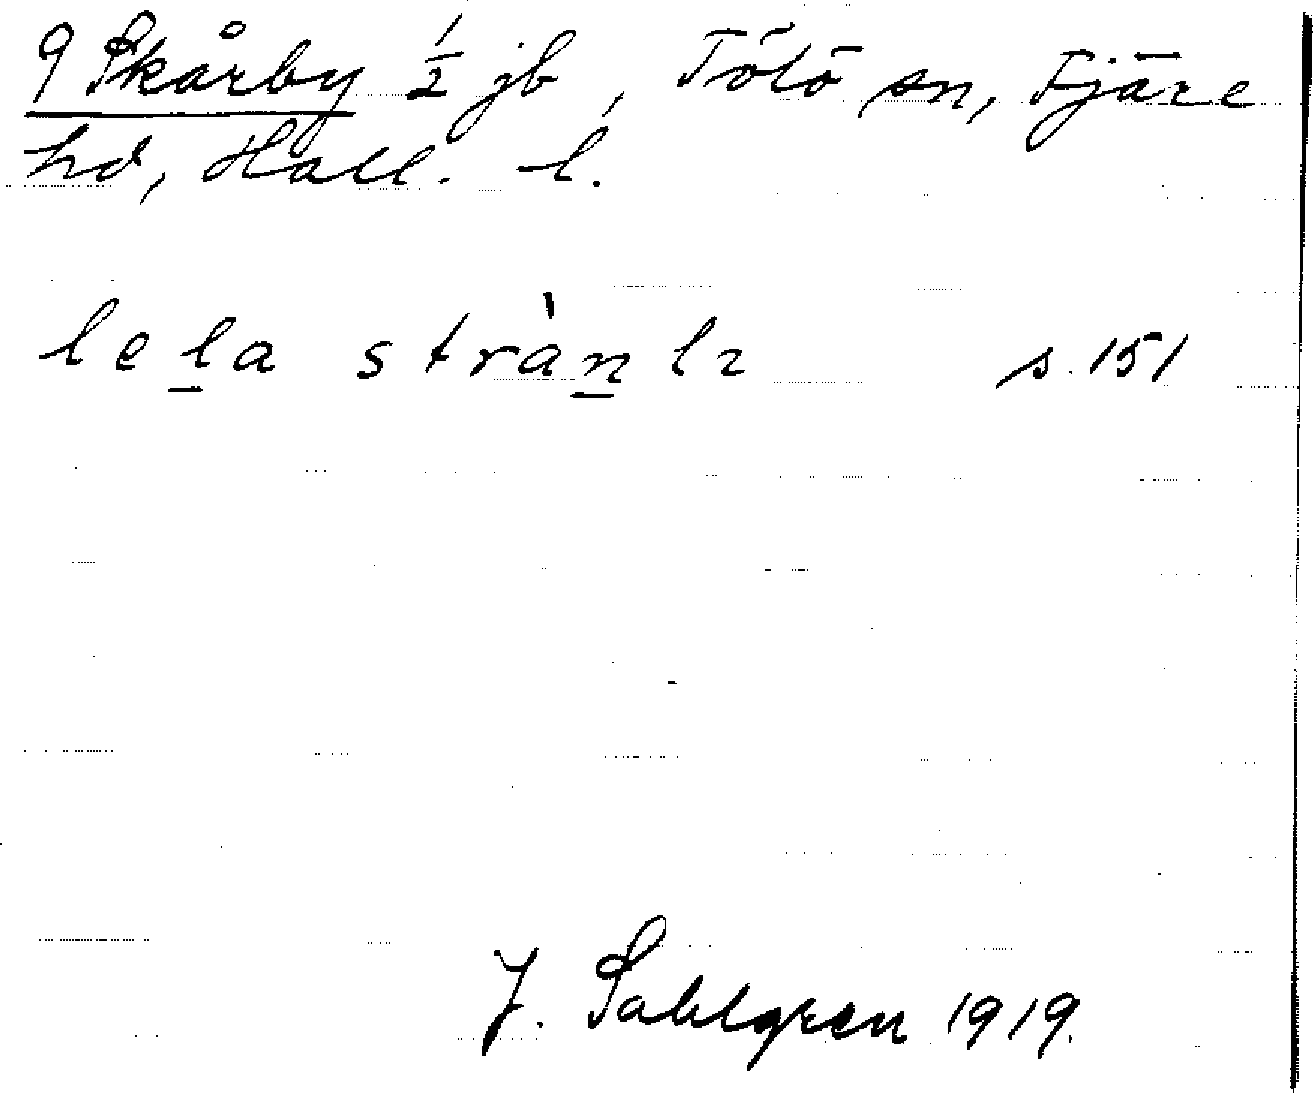 9 Skårby 1/2 jb, Tölö sn, Fjäre
hd, Hall. l.
lela stràn lı s. 151
J. Sahlgren 1919.